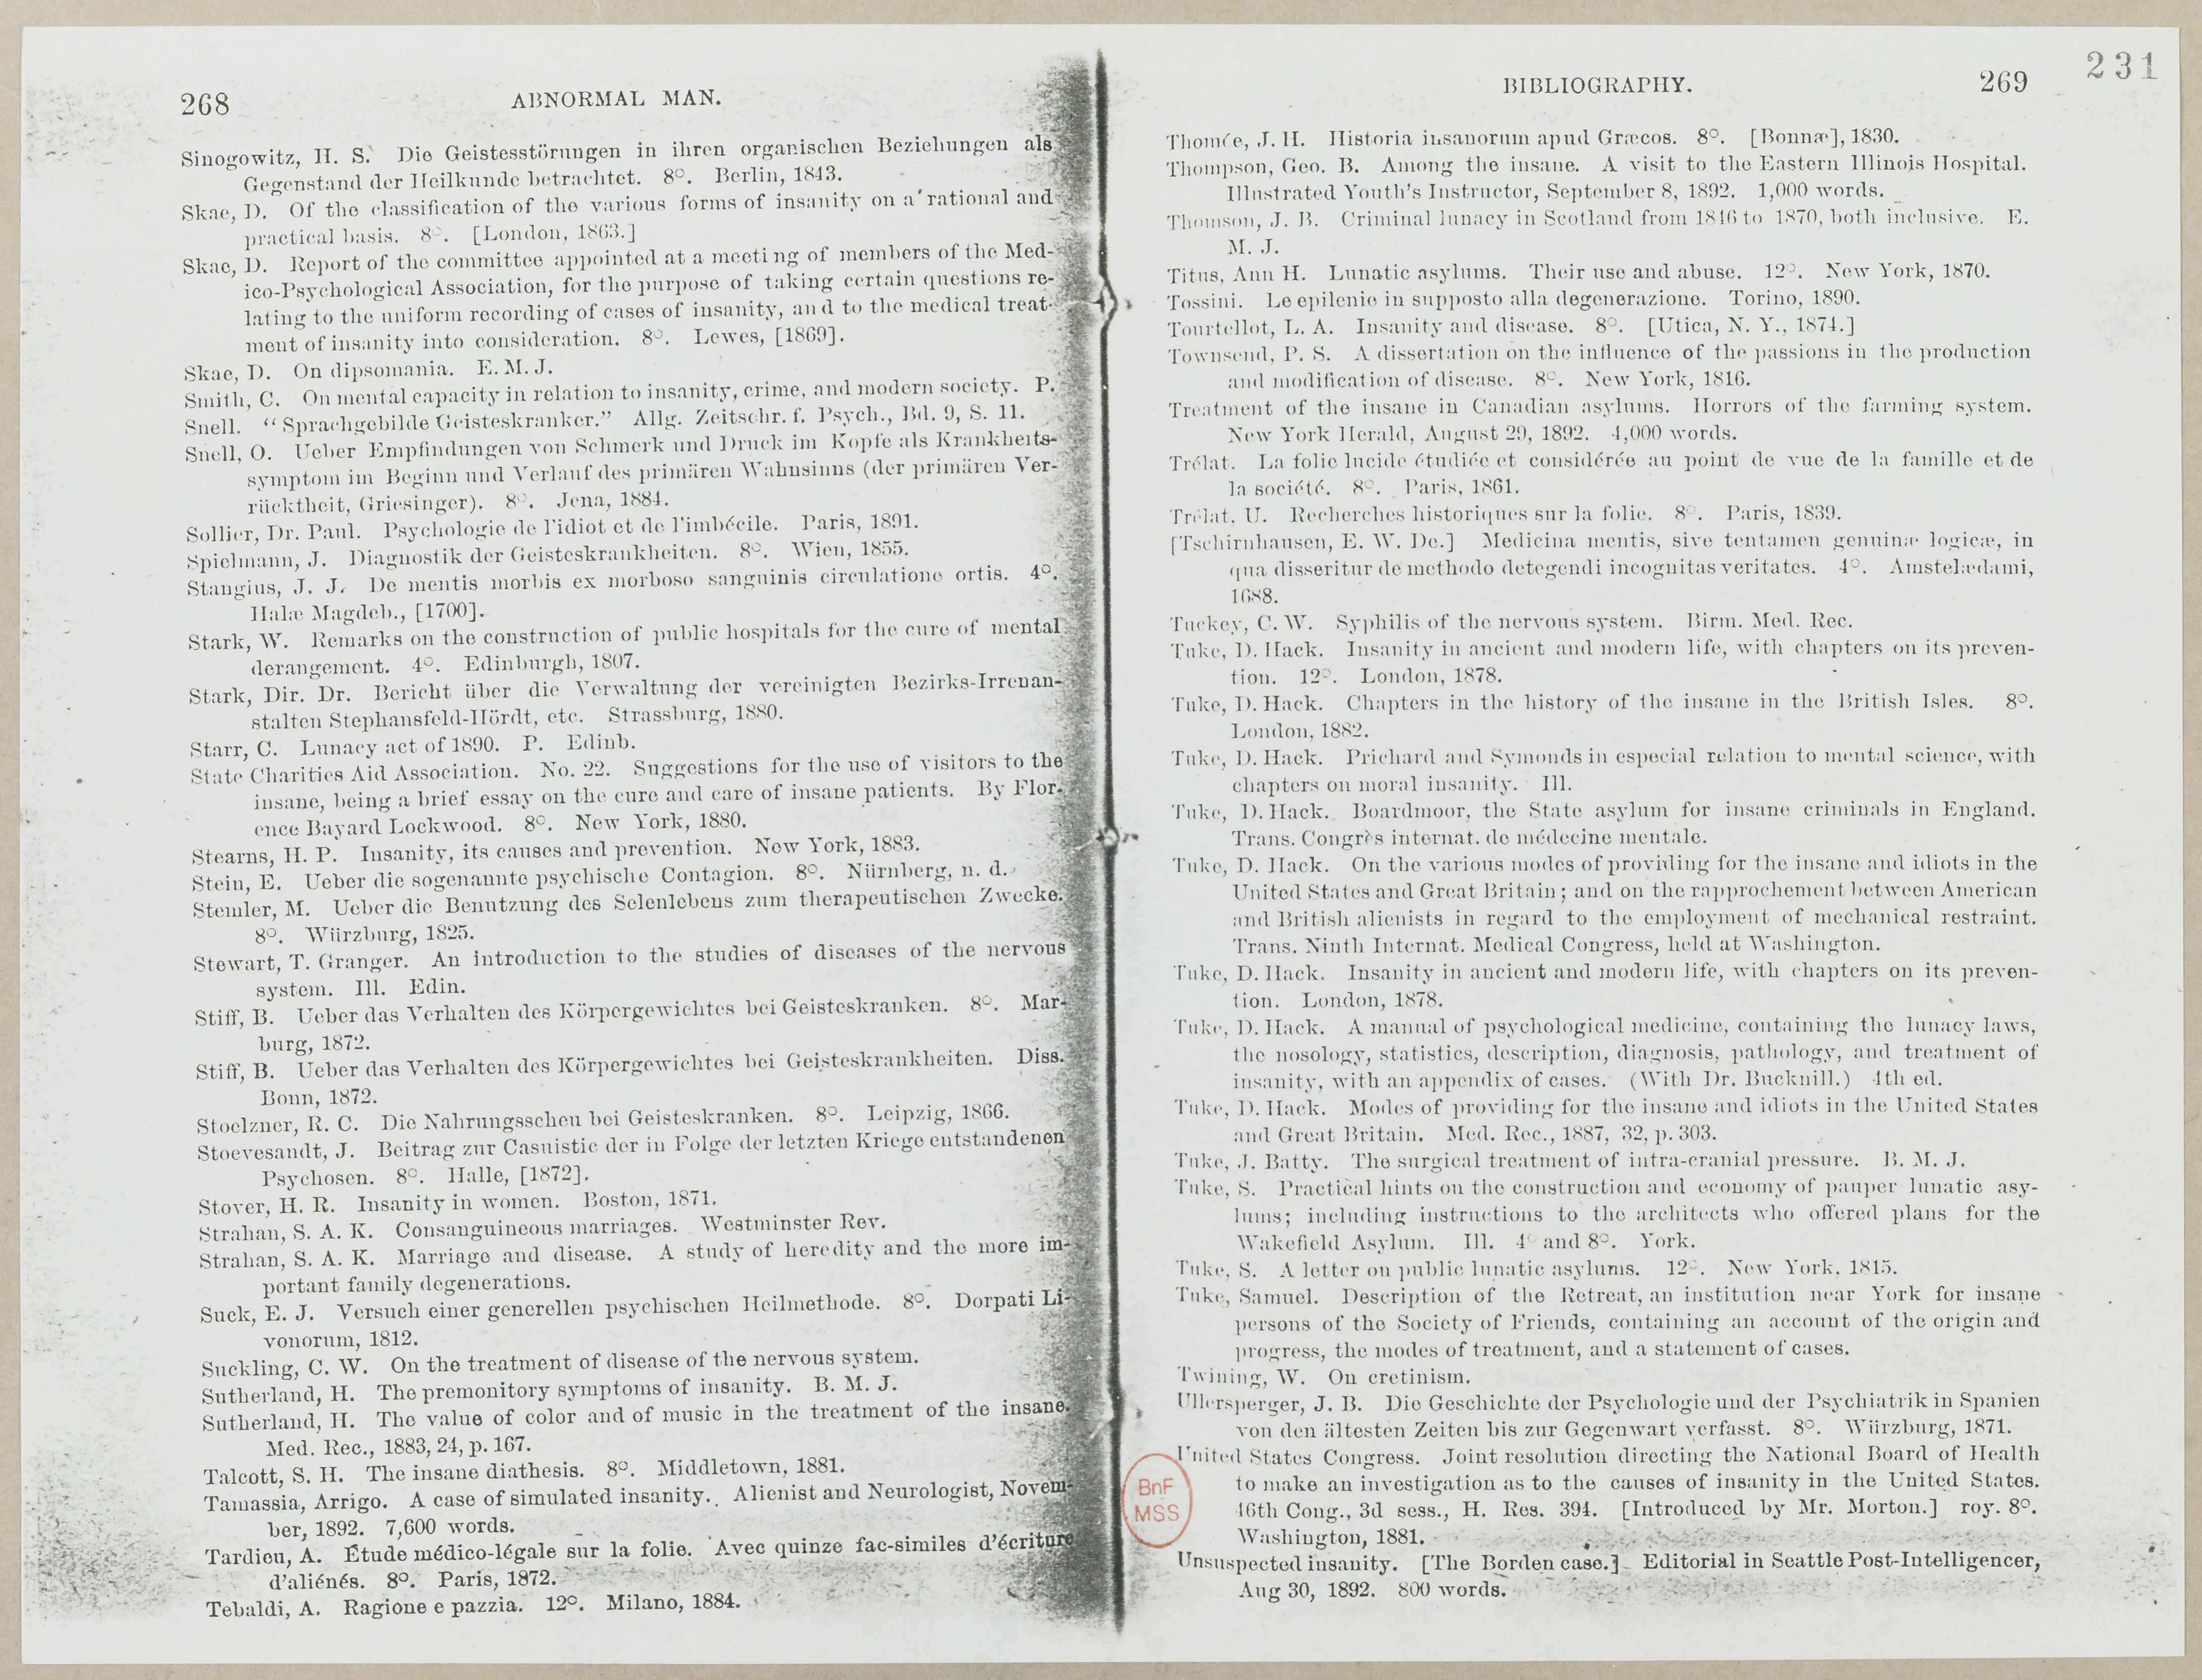 268
ABNORMAL MAN.
Sinogowitz, H. S. Die Geistesstörungen in ihren organischen Beziehungen als
Gegenstand der Heilkunde betrachtet. 8°. Berlin, 1843.
Skae, D. Of the classification of the various forms of insanity on a rational and
practical basis. 8°. [London, 1863.]
Skae, D. Report of the committee appointed at a meeting of members of the Med-
ico-Psychological Association, for the purpose of taking certain questions re-
lating to the uniform recording of cases of insanity, and to the medical treat-
ment of insanity into consideration. 8°. Lewes, [1869].
Skae, D. On dipsomania. E. M. J.
Smith, C. On mental capacity in relation to insanity, crime, and modern society. P.
Snell. "Sprachgebilde Geisteskranker." Allg. Zeitschr. f. Psych., Bd. 9, S. 11.
Snell, O. Ueber Empfindungen von Schmerk und Druck im Kopfe als Krankheits-
symptom im Beginn und Verlauf des primären Wahnsinns (der primären Ver-
rücktheit, Griesinger). 8°. Jena, 1884.
Sollier, Dr. Paul. Psychologie de l'idiot et de l'imbécile. Paris, 1891.
Spielmann, J. Diagnostik der Geisteskrankheiten. 8°. Wien, 1855.
Stangius, J. J. De mentis morbis ex morboso sanguinis circulatione ortis. 4°.
Halæ Magdeb., [1700].
Stark, W. Remarks on the construction of public hospitals for the cure of mental
derangement. 4°. Edinburgh, 1807.
Stark, Dir. Dr. Bericht über die Verwaltung der vereinigten Bezirks-Irrenan-
stalten Stephansfeld-Hördt, etc. Strassburg, 1880.
Starr, C. Lunacy act of 1890. P. Edinb.
State Charities Aid Association. No. 22. Suggestions for the use of visitors to the
insane, being a brief essay on the cure and care of insane patients. By Flor-
ence Bayard Lockwood. 8°. New York, 1880.
Stearns, H. P. Insanity, its causes and prevention. New York, 1883.
Stein, E. Ueber die sogenannte psychische Contagion. 8°. Nürnberg, n. d.
Stemler, M. Ueber die Benutzung des Selenlebens zum therapeutischen Zwecke.
8°. Würzburg, 1825.
Stewart, T. Granger. An introduction to the studies of diseases of the nervous
system. Ill. Edin.
Stiff, B. Ueber das Verhalten des Körpergewichtes bei Geisteskranken. 8°. Mar-
burg, 1872.
Stiff, B. Ueber das Verhalten des Körpergewichtes bei Geisteskrankheiten. Diss.
Bonn, 1872.
Stoelzner, R. C. Die Nahrungsscheu bei Geisteskranken. 8°. Leipzig, 1866.
Stoevesandt, J. Beitrag zur Casuistic der in Folge der letzten Kriege entstandenen
Psychosen. 8°. Halle, [1872].
Stover, H. R. Insanity in women. Boston, 1871.
Strahan, S. A. K. Consanguineous marriages. Westminster Rev.
Strahan, S. A. K. Marriage and disease. A study of heredity and the more im-
portant family degenerations.
Suck, E. J. Versuch einer generellen psychischen Heilmethode. 8°. Dorpati Li-
vonorum, 1812.
Suckling, C. W. On the treatment of disease of the nervous system.
Sutherland, H. The premonitory symptoms of insanity. B. M. J.
Sutherland, H. The value of color and of music in the treatment of the insane.
Med. Rec., 1883, 24, p. 167.
Talcott, S. H. The insane diathesis. 8°. Middletown, 1881.
Tamassia, Arrigo. A case of simulated insanity. Alienist and Neurologist, Novem-
ber, 1892. 7,600 words.
Tardieu, A. Étude médico-légale sur la folie. Avec quinze fac-similes d'écriture
d'aliénés. 8°. Paris, 1872.
Tebaldi, A. Ragione e pazzia. 12°. Milano, 1884.
BIBLIOGRAPHY.
269
231
Thomée, J. H. Historia insanorum apud Græcos. 8°. [Bonnæ], 1830.
Thompson, Geo. B. Among the insane. A visit to the Eastern Illinois Hospital.
Illustrated Youth's Instructor, September 8, 1892. 1,000 words.
Thomson, J. B. Criminal lunacy in Scotland from 1846 to 1870, both inclusive. E.
M. J.
Titus, Ann H. Lunatic asylums. Their use and abuse. 12°. New York, 1870.
Tossini. Le epilenie in supposto alla degenerazione. Torino, 1890.
Tourtellot, L. A. Insanity and disease. 8°. [Utica, N. Y., 1874.]
Townsend, P. S. A dissertation on the influence of the passions in the production
and modification of disease. 8°. New York, 1816.
Treatment of the insane in Canadian asylums. Horrors of the farming system.
New York Herald, August 29, 1892. 4,000 words.
Trélat. La folie lucide étudiée et considérée au point de vue de la famille et de
la société. 8°. Paris, 1861.
Trélat, U. Recherches historiques sur la folie. 8°. Paris, 1839.
[Tschirnhausen, E. W. De.] Medicina mentis, sive tentamen genuinæ logicæ, in
qua disseritur de methodo detegendi incognitas veritates. 4°. Amstelædami,
1688.
Tuckey, C. W. Syphilis of the nervous system. Birm. Med. Rec.
Tuke, D. Hack. Insanity in ancient and modern life, with chapters on its preven-
tion. 12°. London, 1878.
Tuke, D. Hack. Chapters in the history of the insane in the British Isles. 8°.
London, 1882.
Tuke, D. Hack. Prichard and Symonds in especial relation to mental science, with
chapters on moral insanity. Ill.
Tuke, D. Hack. Boardmoor, the State asylum for insane criminals in England.
Trans. Congrès internat. de médecine mentale.
Tuke, D. Hack. On the various modes of providing for the insane and idiots in the
United States and Great Britain; and on the rapprochement between American
and British alienists in regard to the employment of mechanical restraint.
Trans. Ninth Internat. Medical Congress, held at Washington.
Tuke, D. Hack. Insanity in ancient and modern life, with chapters on its preven-
tion. London, 1878.
Tuke, D. Hack. A manual of psychological medicine, containing the lunacy laws,
the nosology, statistics, description, diagnosis, pathology, and treatment of
insanity, with an appendix of cases. (With Dr. Bucknill.) 4th ed.
Tuke, D. Hack. Modes of providing for the insane and idiots in the United States
and Great Britain. Med. Rec., 1887, 32, p. 303.
Tuke, J. Batty. The surgical treatment of intra-cranial pressure. B. M. J.
Tuke, S. Practical hints on the construction and economy of pauper lunatic asy-
lums; including instructions to the architects who offered plans for the
Wakefield Asylum. Ill. 4° and 8°. York.
Tuke, S. A letter on public lunatic asylums. 12°. New York, 1815.
Tuke, Samuel. Description of the Retreat, an institution near York for insane
persons of the Society of Friends, containing an account of the origin and
progress, the modes of treatment, and a statement of cases.
Twining, W. On cretinism.
Ullersperger, J. B. Die Geschichte der Psychologie und der Psychiatrik in Spanien
von den ältesten Zeiten bis zur Gegenwart verfasst. 8°. Würzburg, 1871.
United States Congress. Joint resolution directing the National Board of Health
to make an investigation as to the causes of insanity in the United States.
46th Cong., 3d sess., H. Res. 394. [Introduced by Mr. Morton.] roy. 8°.
Washington, 1881.
Unsuspected insanity. [The Borden case.] Editorial in Seattle Post-Intelligencer,
Aug 30, 1892. 800 words.
BnF
MSS